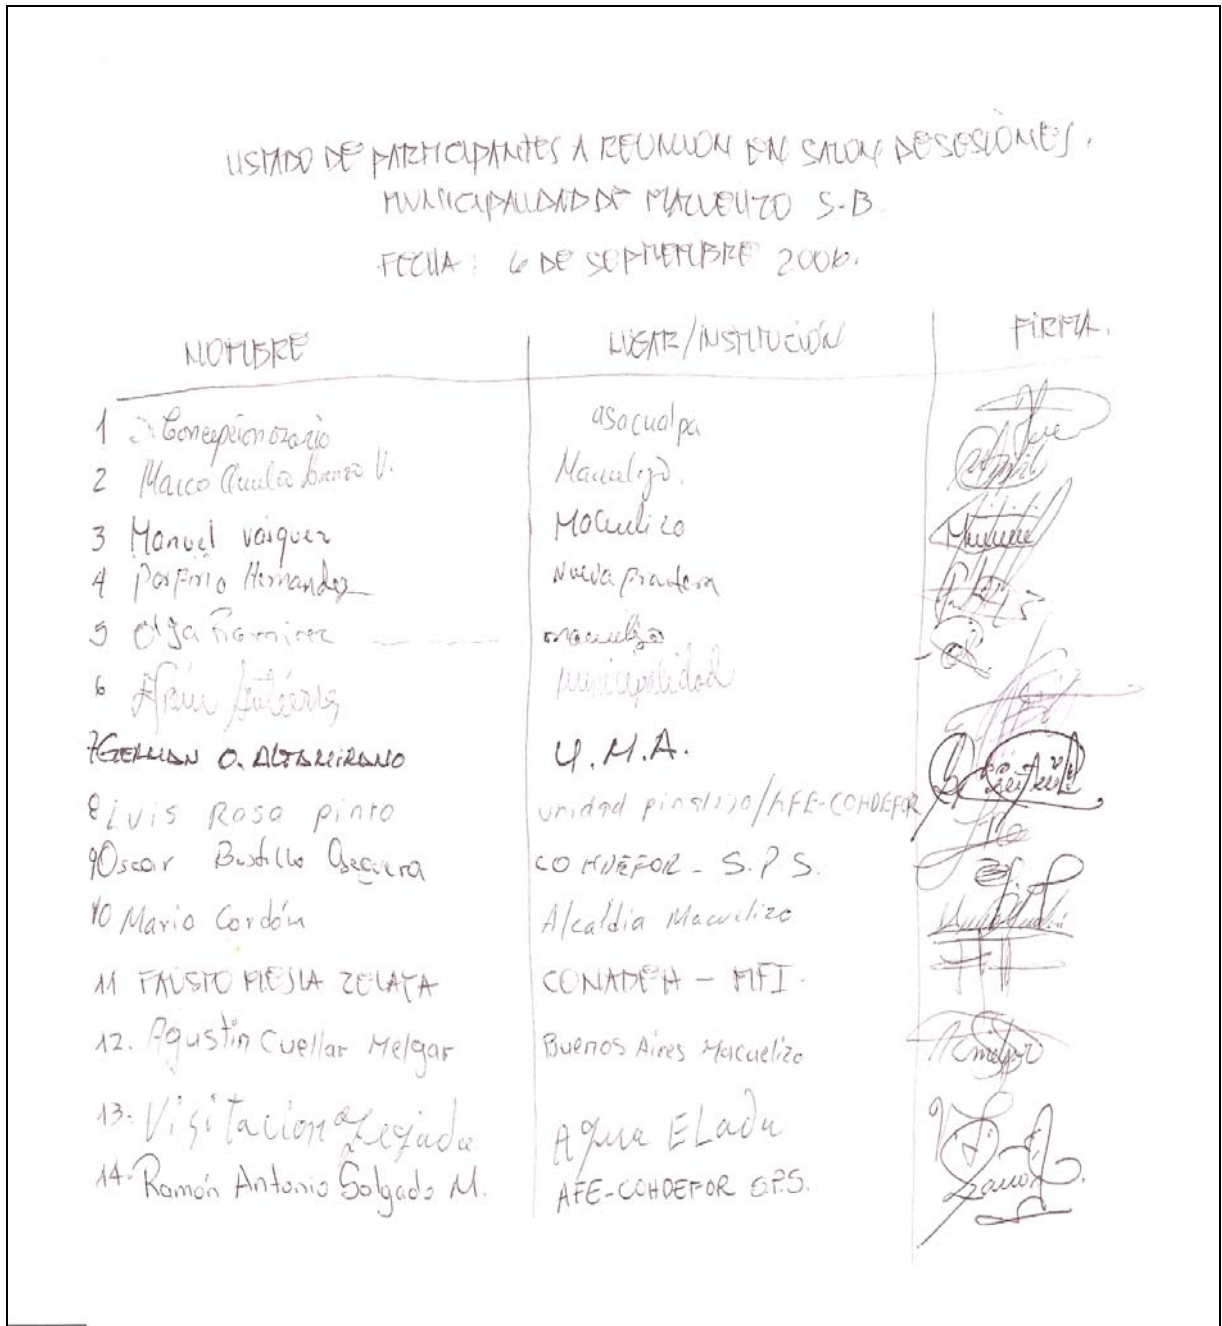 LISTADO DE PARTICIPANTES A REUNION EN SALON DE SESIONES.
MUNICIPALIDAD DE MACUELIZO S-B.
FECHA: 6 DE SEPTIEMBRE 2006.
NOMBRE LUGAR/INSTITUCIÓN FIRMA.
1 Concepcion ozorio asacualpa
2 Marco V. Macuelizo.
3 Manuel vasquez Macuelizo
4 Porfirio Hernandez Nueva frontera
5 Olga Ramirez macuelizo
6 Efrain Gutierrez municipalidad
7 GERMAN O. ALTAMIRANO U.M.A.
8 LUIS Rosa pinto unidad pinalizo/AFE-COHDEFOR
9 Oscar Bustillo Oseguera COHDEFOR - S.P.S.
10 Mario Cordón Alcaldia Macuelizo
11 FAUSTO MEJIA ZELAYA CONADEH - MFI.
12. Agustin Cuellar Melgar Buenos Aires Macuelizo
13. Visitacion Tejada Agua ELada
14. Ramón Antonio Salgado M. AFE-COHDEFOR S.P.S.